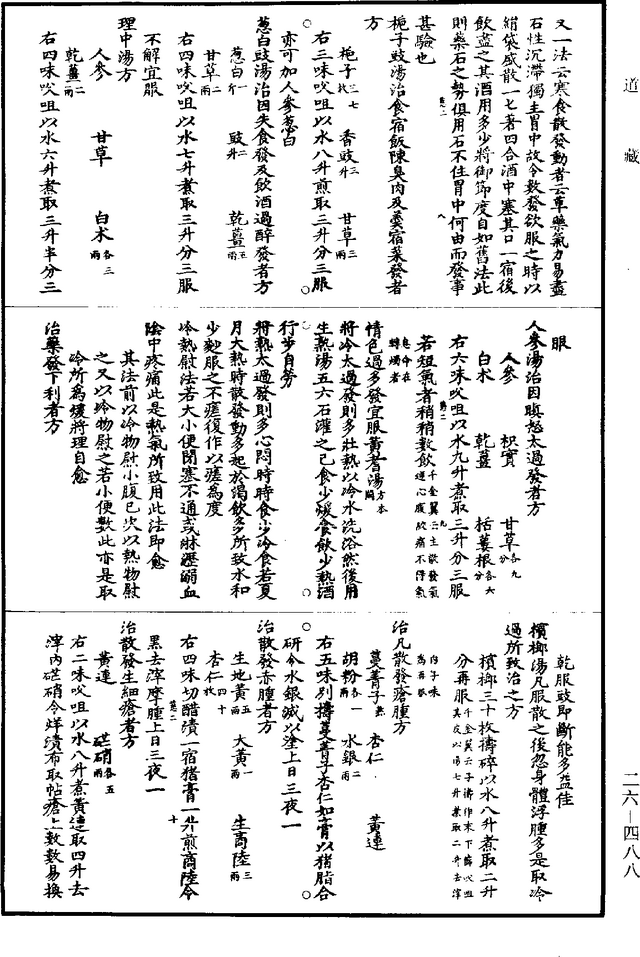 道藏
又一法云寒食散發動者云草藥氣力易盡
石性沉滯獨主胃中故令數發欲服之時以
絹袋盛散一匕著四合酒中塞其口一宿後
飲盡之其酒用多少將御節度自如舊法此
則藥石之勢俱用石不住胃中何由而發事
甚驗也
梔子豉湯治食宿飯陳臭肉及羹宿菜發者
方
梔子三七枚 香豉三升 甘草三兩
右三味㕮咀以水八升煎取三升分三服
亦可加人參葱白
葱白豉湯治因失食發及飲酒過醉發者方
葱白一斤 豉二升 乾薑五兩
甘草二兩
右四味㕮咀以水七升煮取三升分三服
不解宜服
理中湯方
人參 甘草 白术各三兩
乾薑二兩
右四味㕮咀以水六升煮取三升半分三
服
人參湯治因瞋怒太過發者方
人參 枳實 甘草各九分
白术 乾薑 栝蔞根各六分
右六味㕮咀以水九升煮取三升分三服
若短氣者稍稍數飲千金翼云主散發氣逆心腹絞痛不得氣息命在轉燭者
情色過多發宜服黃耆湯方本闕
將冷太過發則多壯熱以冷水洗浴然後用
生熟湯五六石灌之已食少煖食飲少熱酒
行步自勞
將熱太過發則多心悶時時食少冷食若夏
月大熱時散發動多起於渴飲多所致水和
少麨服之不瘥復作以瘥爲度
冷熱慰法若大小便閉塞不通或淋瀝溺血
陰中疼痛此是熱氣所致用此法即愈
其法前以冷物慰小腹已次以熱物慰
之又以冷物慰之若小便數此亦是取
冷所爲煖將理自愈
治藥發下利者方
乾服豉即斷能多益佳
檳榔湯凡服散之後忽身體浮腫多是取冷
過所致治之方
檳榔三十枚擣碎以水八升煮取二升
分再服千金翼云子擣作末下篩㕮咀其皮以湯七升煮取二升去滓內子味爲再服
治凡散發瘡腫方
蔓菁子熬 杏仁 黃連
胡粉各一兩 水銀二兩
右五味別擣蔓菁子杏仁如膏以猪脂合
研令水銀滅以塗上日三夜一
治散發赤腫者方
生地黃五兩 大黃一兩 生商陸三兩
杏仁四十枚
右四味切醋漬一宿猪膏一升煎商陸令
黑去滓摩腫上日三夜一
治散發生細瘡者方
黃連 芒硝各五兩
右二味㕮咀以水八升煮黃連取四升去
滓內芒硝令烊漬布取帖瘡上數數易換
二六—四八八